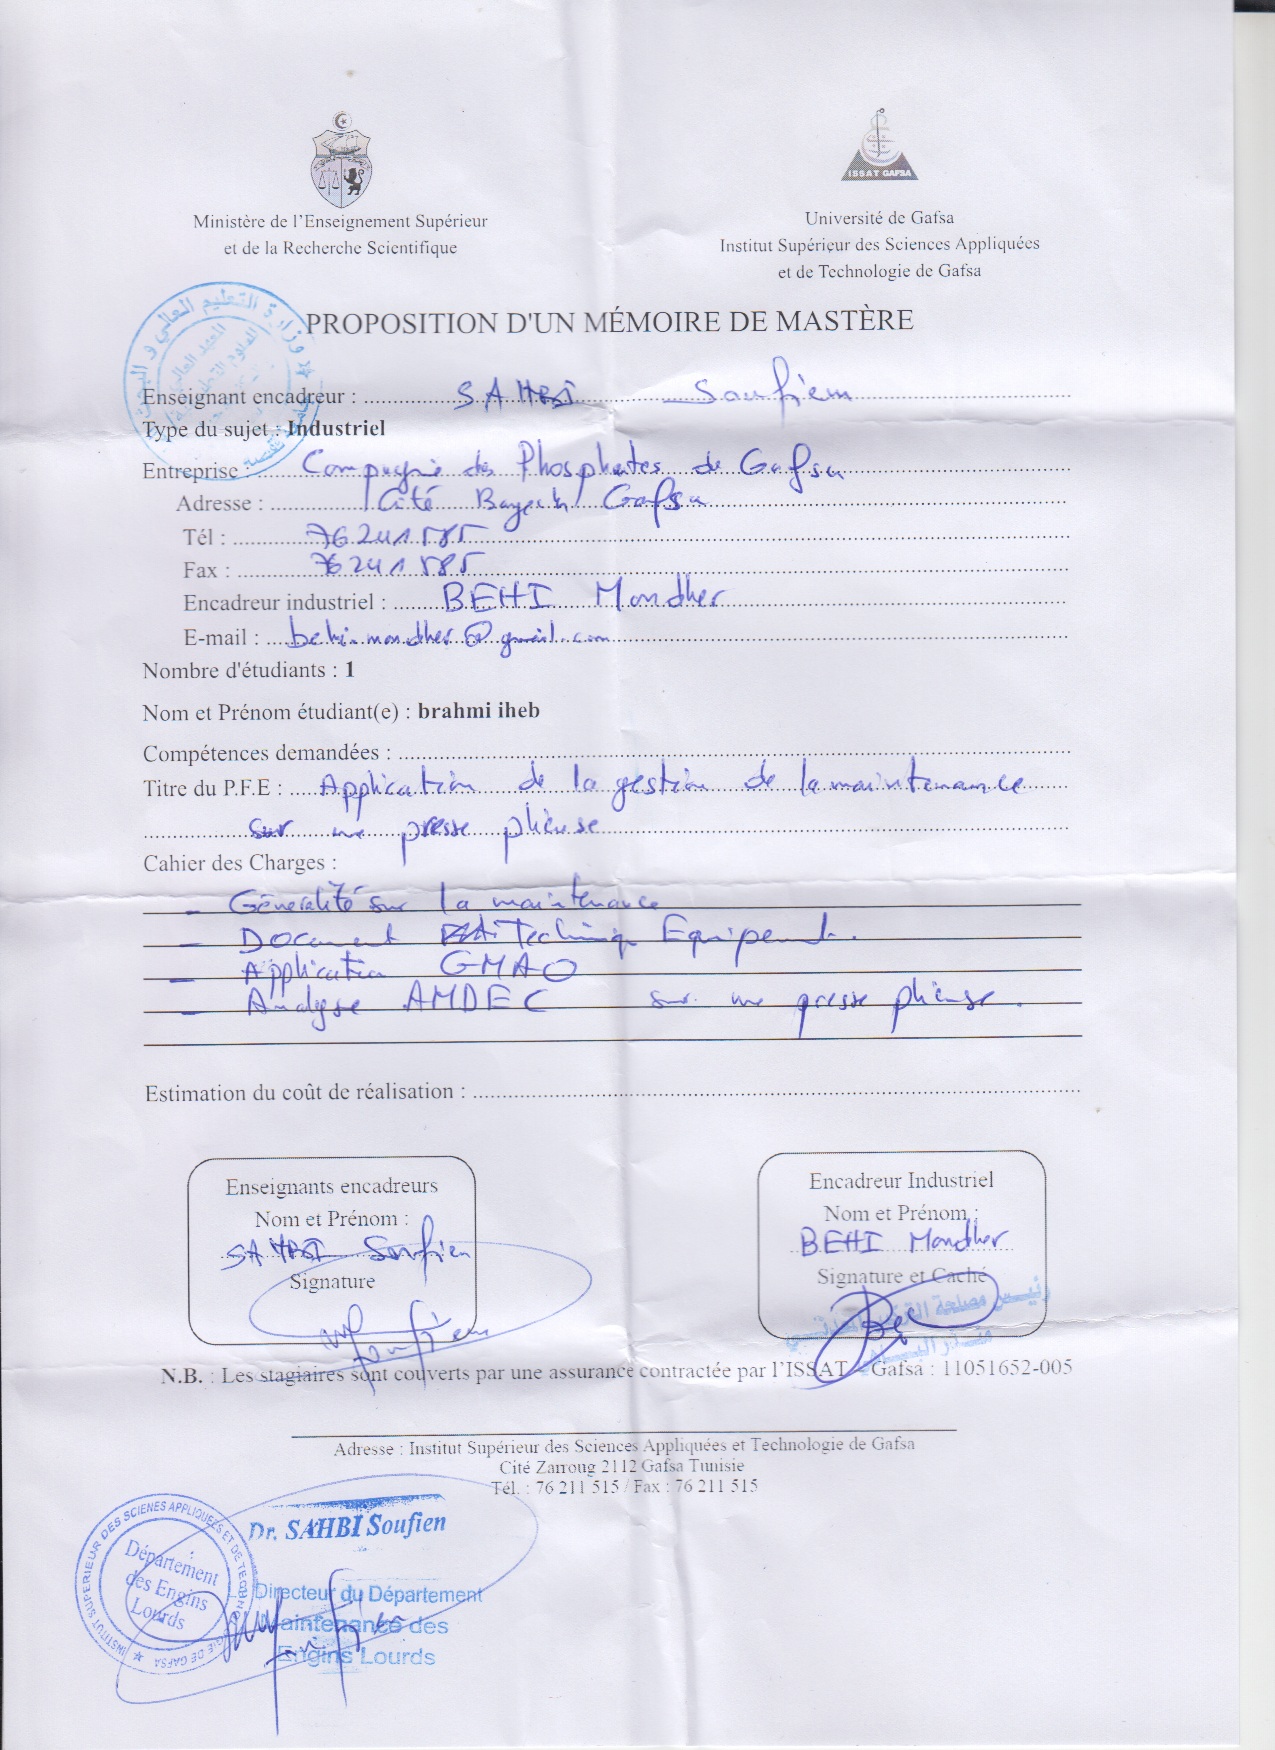 ISSAT GAFSA
Ministère de l'Enseignement Supérieur
et de la Recherche Scientifique
Université de Gafsa
Institut Supérieur des Sciences Appliquées
et de Technologie de Gafsa
PROPOSITION D'UN MÉMOIRE DE MASTÈRE
Enseignant encadreur : SAHBI Soufien
Type du sujet : Industriel
Entreprise : Compagnie des Phosphates de Gafsa
Adresse : Cité Bayech Gafsa
Tél : 76 241 585
Fax : 76 241 585
Encadreur industriel : BEHI Mondher
E-mail : behi.mondher@gmail.com
Nombre d'étudiants : 1
Nom et Prénom étudiant(e) : brahmi iheb
Compétences demandées :
Titre du P.F.E : Application de la gestion de la maintenance
sur une presse plieuse
Cahier des Charges :
- Généralité sur la maintenance
- Document Equipement.
- Application GMAO
- Analyse AMDEC sur une presse plieuse.
Estimation du coût de réalisation :
Enseignants encadreurs
Nom et Prénom :
SAHBI Soufien
Signature
Encadreur Industriel
Nom et Prénom :
BEHI Mondher
Signature et Caché
N.B. : Les stagiaires sont couverts par une assurance contractée par l'ISSAT - Gafsa : 11051652-005
Adresse : Institut Supérieur des Sciences Appliquées et Technologie de Gafsa
Cité Zarroug 2112 Gafsa Tunisie
Tél. : 76 211 515 / Fax : 76 211 515
INSTITUT SUPERIEUR DES SCIENES APPLIQUEES ET DE TECHNOLOGIE DE GAFSA
Département
des Engins
Lourds
Dr. SAHBI Soufien
Directeur du Département
Maintenance des
Engins Lourds